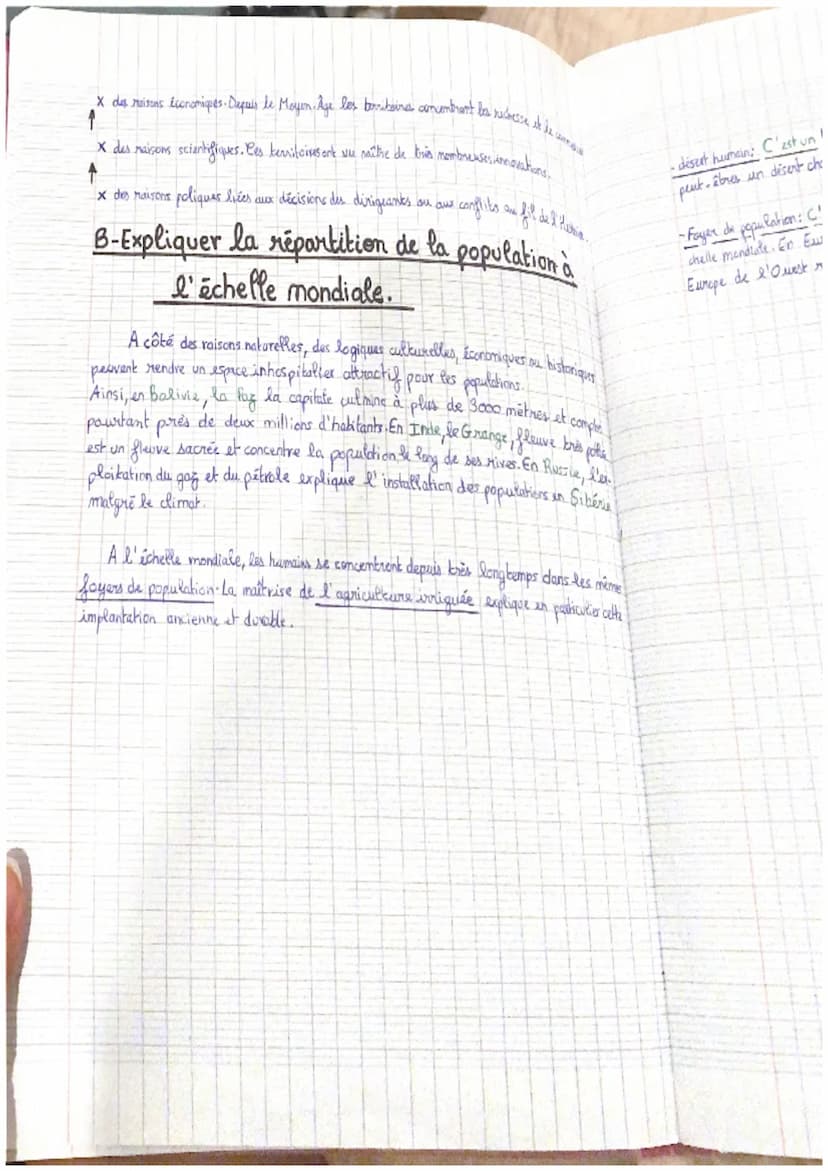 x des raisons économiques. Depuis le Moyen-Âge les territoires concentrent la richesse et le
↑
x des raisons scientifiques. Ces territoires ont vu naître de très nombreuses innovations.
↑
x des raisons poliques liées aux décisions des dirigeants ou aux conflits au fil de l'Histoire.
B-Expliquer la répartition de la population à
l'échelle mondiale.
A côté des raisons naturelles, des logiques culturelles, économiques ou historiques
peuvent rendre un espace inhospitalier attractif pour les populations.
Ainsi, en Bolivie, la Paz la capitale culmine à plus de 3000 mètres et compte
pourtant près de deux millions d'habitants. En Inde, le Grange, fleuve très pollué
est un fleuve sacrée et concentre la population le long de ses rives. En Russie, l'ex-
ploitation du gaz et du pétrole explique l'installation des populations en Sibérie
malgré le climat.
A l'échelle mondiale, les humains se concentrent depuis très longtemps dans les même
foyers de population. La maîtrise de l'agriculture irriguée explique en particulier cette
implantation ancienne et durable.
- désert humain: C'est un
peut-êtres un désert
- Foyer de population: C'
chelle mondiale. En
Europe de l'Ouest